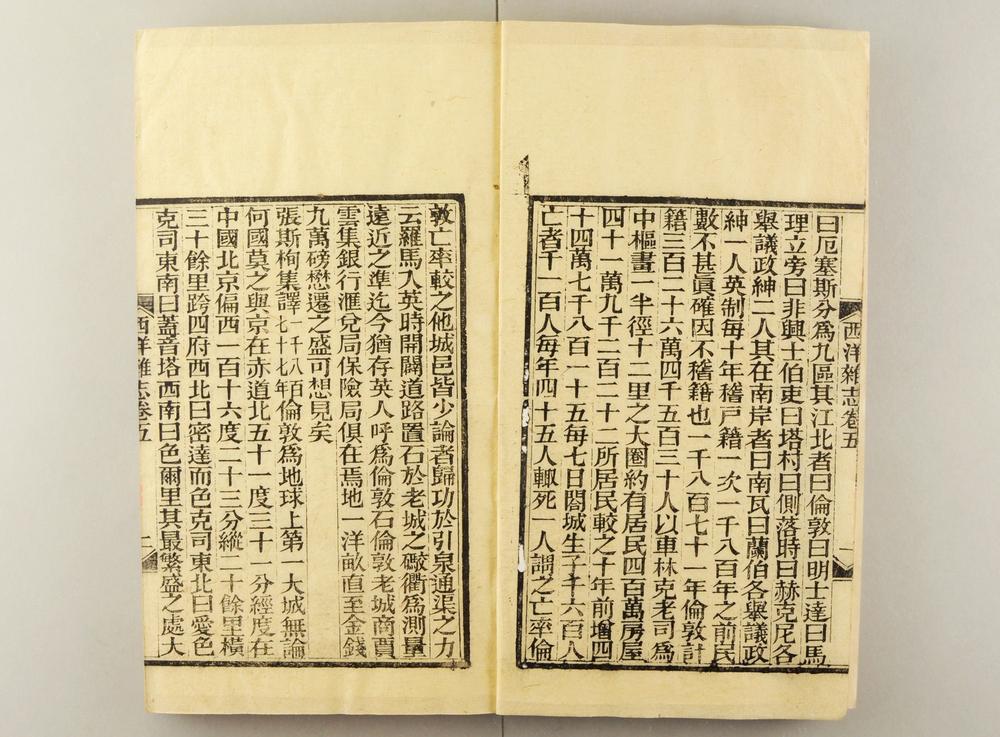 西洋雜志卷五
一
曰厄塞斯分爲九區其江北者曰倫敦曰明士達曰馬
理立旁曰非興士伯吏曰塔村曰側落時曰赫克尼各
舉議政紳二人其在南岸者曰南瓦曰蘭伯各舉議政
紳一人英制每十年稽戸籍一次一千八百年之前民
數不甚眞確因不稽籍也一千八百七十一年倫敦計
籍三百二十六萬四千五百三十人以車林克老司爲
中樞畫一半徑十二里之大圈約有居民四百萬房屋
四十一萬九千二百二十二所居民較之十年前增四
十四萬七千八百一十五每七日閤城生子千六百八
亡者千一百人每年四十五人輙死一人謂之亡率倫
敦亡率較之他城邑皆少論者歸功於引泉通渠之力
云羅馬入英時開闢道路置石於老城之礮衢爲測量
遠近之準迄今猶存英人呼爲倫敦石倫敦老城商賈
雲集銀行滙兌局保險局俱在焉地一洋畝直至金錢
九萬磅懋遷之盛可想見矣
張斯栒集譯一千八百七十七年倫敦爲地球上第一大城無論
何國莫之與京在赤道北五十一度三十一分經度在
中國北京偏西一百十六度二十三分縱二十餘里橫
三十餘里跨四府西北曰密達而色克司東北曰愛色
克司東南曰蓋音塔西南曰色爾里其最繁盛之處大
西洋雜志卷五
二